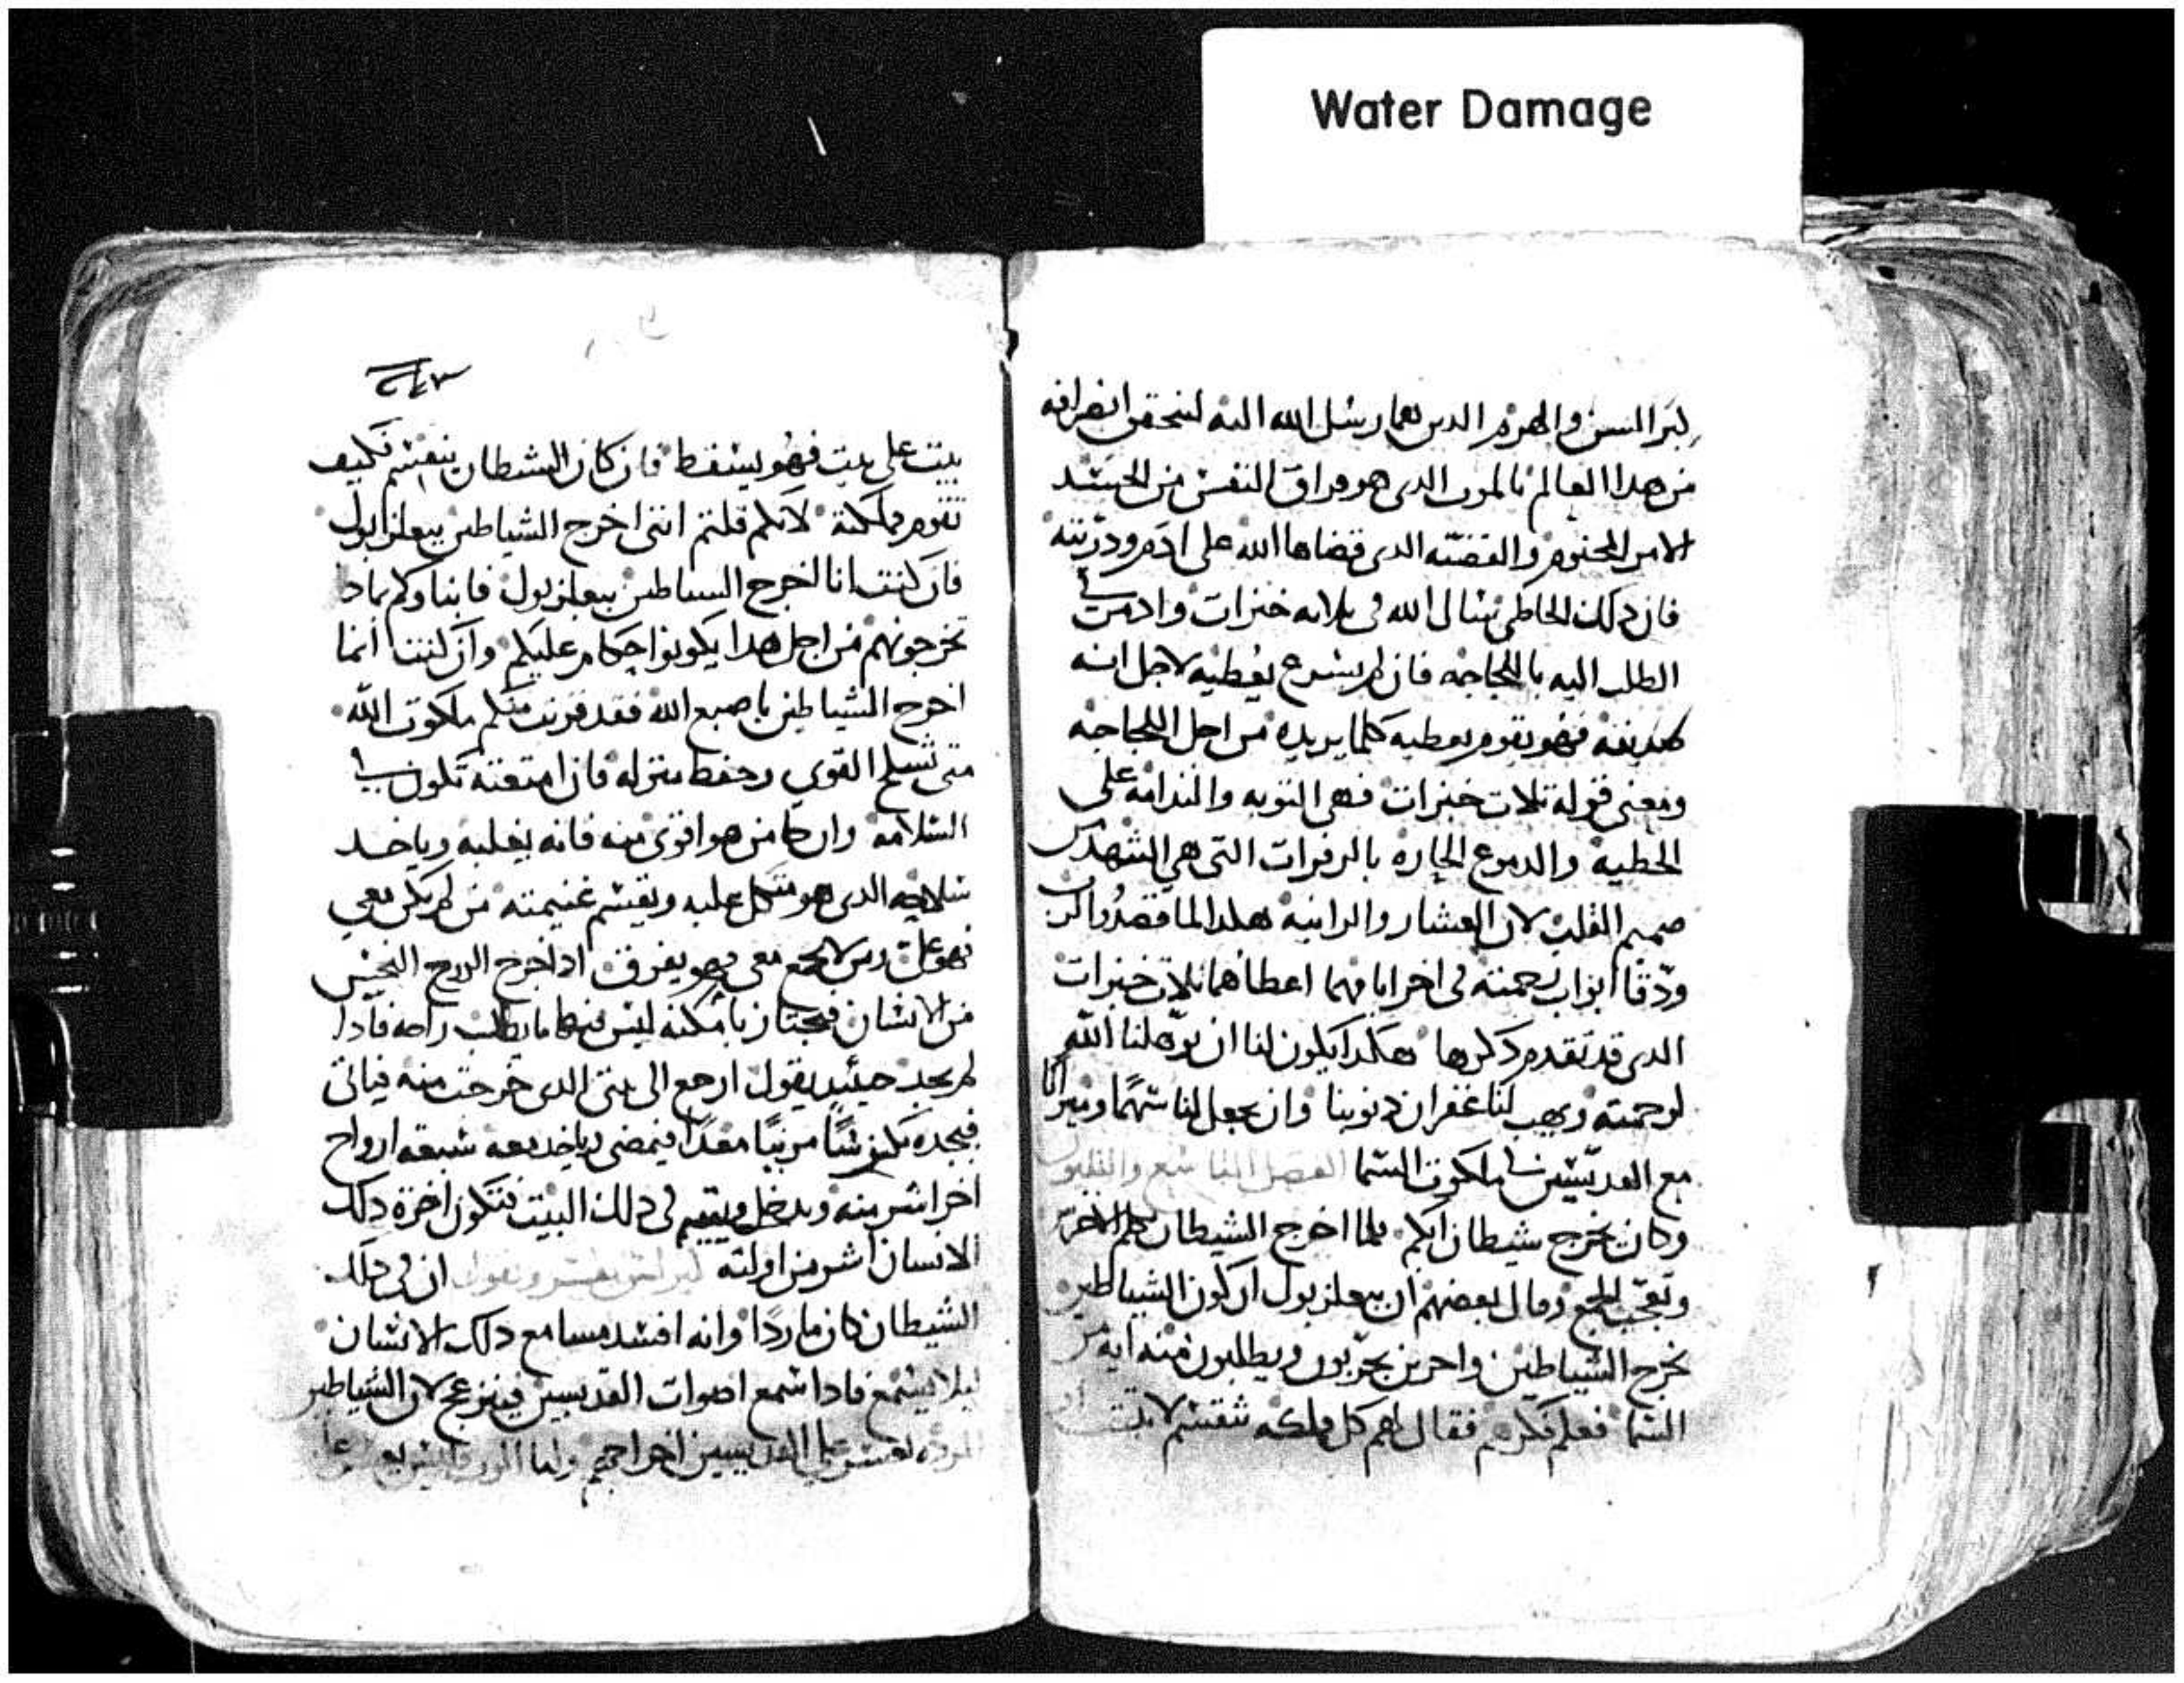 Water Damage
كبر السن والهرم الدين هما رسل الله اليه لتحقق انصرافه
من هدا العالم بالموت الدى هو فراق النفس من الجسد
الامر المحتوم والقضيه الدى قضاها الله على ادم ودريته
فان دلك الخاطى يسال الله فى تلاته خبزات وادمن
الطلب اليه باللجاجه فان لم يسرع يعطيه لاجل انه
صديقه فهو يقوم يعطيه كلما يريده من اجل اللجاجه
ومعنى قوله تلات خبزات فهى التوبه والندامه على
الخطيه والدموع الحاره بالزفرات التى هى التنهد من
صميم القلب لان العشار والزانيه هكدا لما قصدوا الرب
ودقا ابواب رحمته فى اخر ايامهما اعطاهما تلات خبزات
الدى قد تقدم دكرها هكدا يكون لنا ان يوهلنا الله
لرحمته ويهب لنا غفران دنوبنا وان يجعل لنا سهمًا وميراثا
مع القديسين فى ملكوت السما الفصل التاسع والتلتون
وكان يخرج شيطان ابكم فلما اخرج الشيطان تكلم الاخرس
وتعجب الجمع وقال بعضهم ان ببعلزبول اركون الشياطين
يخرج الشياطين واخرين يجربون ويطلبون منه ايه من
السما فعلم فكرهم فقال لهم كل مملكه تنقسم لا تتبت
بيت على بيت فهو يسقط فان كان الشيطان ينقسم فكيف
تقوم مملكته لانكم قلتم اننى اخرج الشياطين ببعلزبول
فان كنت انا اخرج الشياطين ببعلزبول فابناوكم بمادا
تخرجونهم من اجل هدا يكونوا حكام عليكم وان كنت انما
اخرج الشياطين باصبع الله فقد قربت منكم ملكوت الله
متى تسلح القوى وحفظ منزله فان امتعته تكون فى
السلامه وان جا من هو اقوى منه فانه يغلبه وياخد
سلاحه الدى هو متكل عليه ويقسم غنيمته من لم يكن معى
فهو على ومن لا يجمع معى فهو يفرق ادا خرج الروح النجس
من الانسان فيجتاز بامكنه ليس فيها ما يطلب راحه فادا
لم يجد حينيد يقول ارجع الى بيتى الدى خرجت منه فياتى
فيجده مكنوسًا مزينًا معدًا فيمضى وياخد معه سبعه ارواح
اخر اشر منه ويدخل ويقيم فى دلك البيت فتكون اخرة دلك
الانسان اشر من اولته يفسر ويقول ان فى دلك
الشيطان كان ماردًا وانه افسد مسامع دلك الانسان
ليلا يسمع فادا سمع اصوات القديسين فينزعج لان الشياطين
القديسين اخراجهم